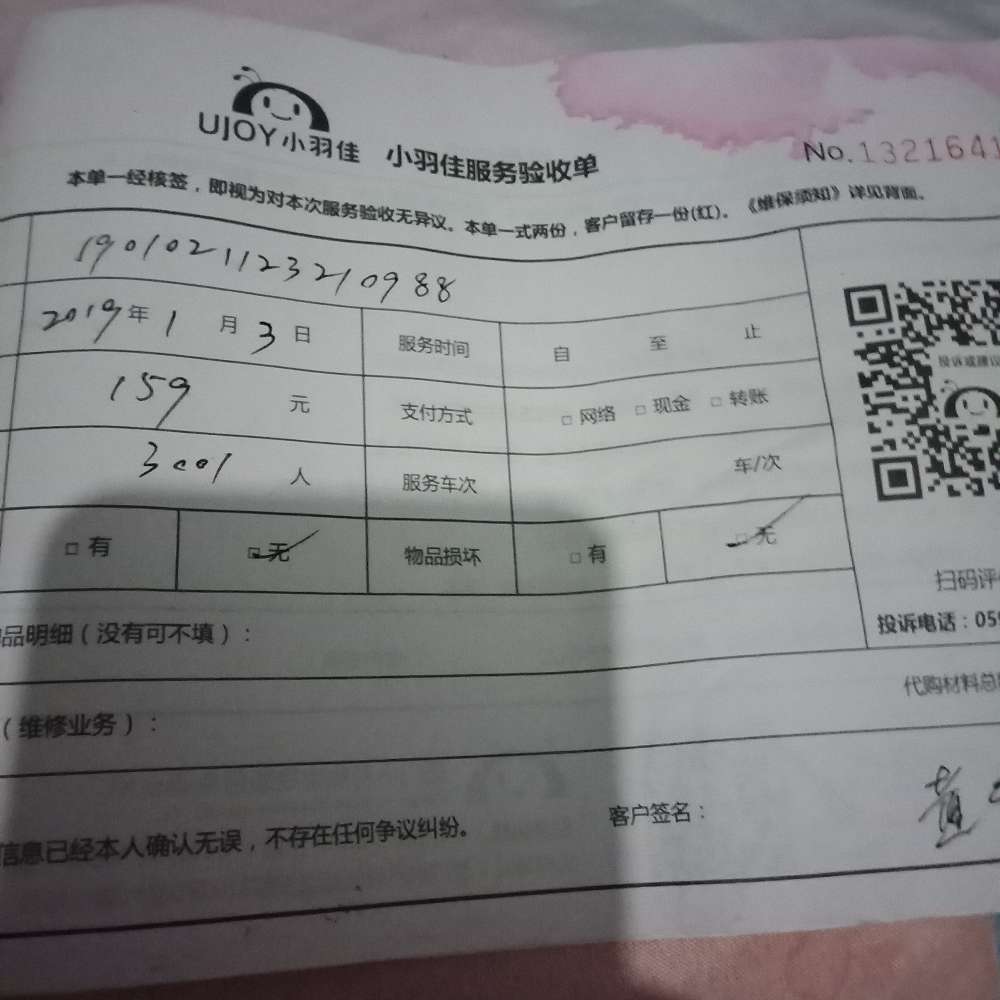 UJOY小羽佳 小羽佳服务验收单
No.1321641
本单一经核签，即视为对本次服务验收无异议。本单一式两份，客户留存一份(红)。《维保须知》详见背面。
1901021123210988
2019年1月3日 服务时间 自 至 止
投诉或建议
159 元 支付方式 □ 网络 □ 现金 □ 转账
3001 人 服务车次 车/次
□ 有 □ 无 物品损坏 □ 有 □ 无
扫码评价
品明细（没有可不填）：
投诉电话：059
代购材料总
（维修业务）：
客户签名：黄
信息已经本人确认无误，不存在任何争议纠纷。